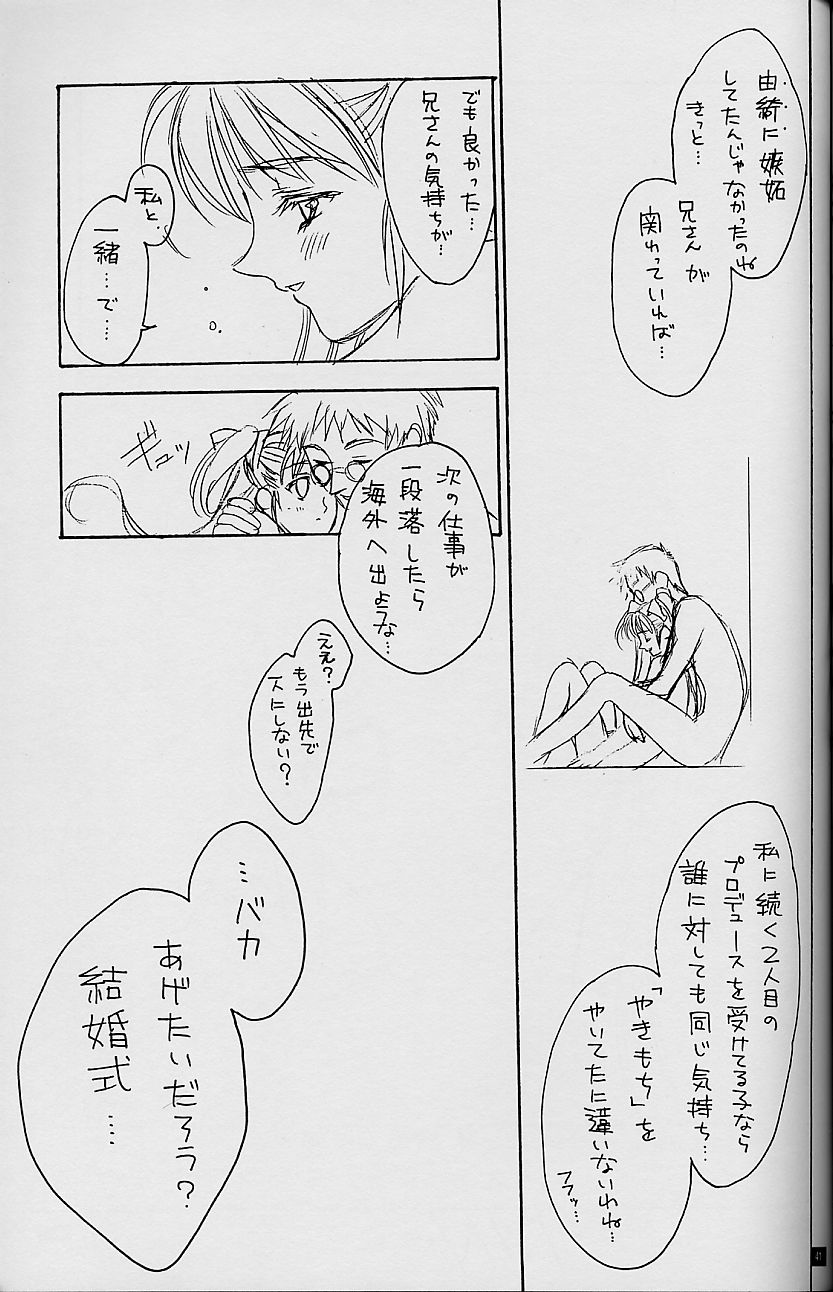 由綺に嫉妬
してたんじゃ
なかったのね
きっと…
兄さんが
関わっていれば…
私に続く2人目の
プロデュースを受けてる子なら
誰に対しても同じ気持ち…
「やきもち」を
やいてたに違いないわね…
フフッ…
でも良かった…
兄さんの気持ちが…
私と
一緒…で…
ギュッ
次の仕事が
一段落したら
海外へ出ような…
ええ?
もう出先で
人にしない?
…バカ
あげたいだろう?
結婚式…
41